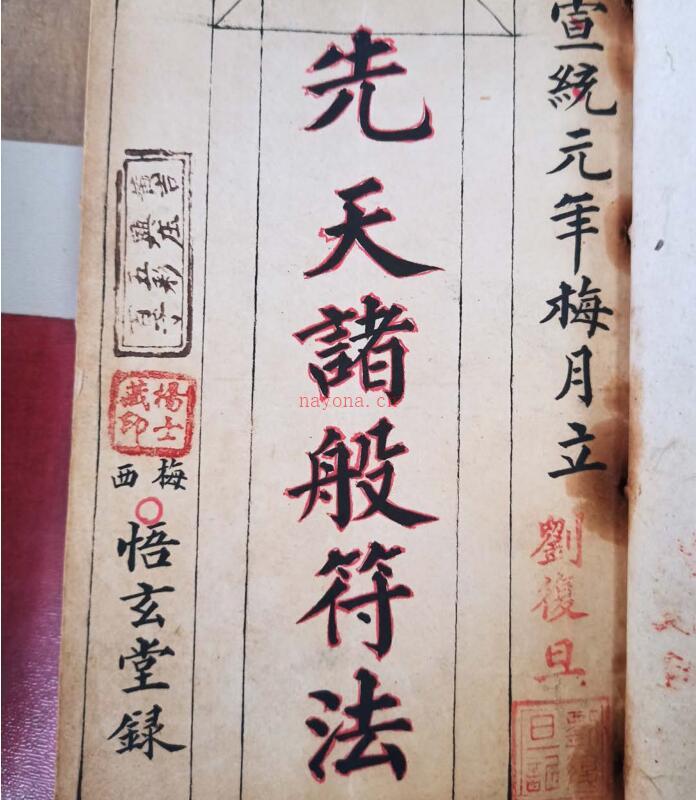 宣統元年梅月立
劉復旦
先天諸般符法
楊士
藏印
梅西
悟玄堂録
nayona.cn